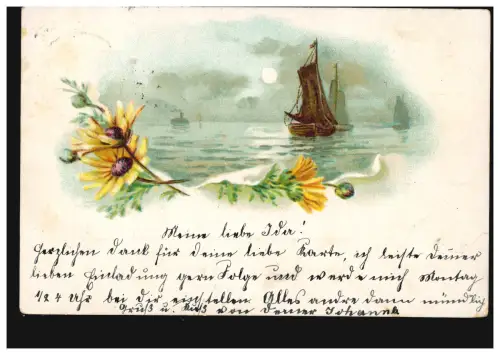 Meine liebe Ida!
Herzlichen Dank für deine liebe Karte, ich leiste deiner
lieben Einladung gern Folge und werde mich Montag
1/2 4 Uhr bei dir einstellen Alles andre dann mündlich
Gruß u. Kuß von deiner Johanna